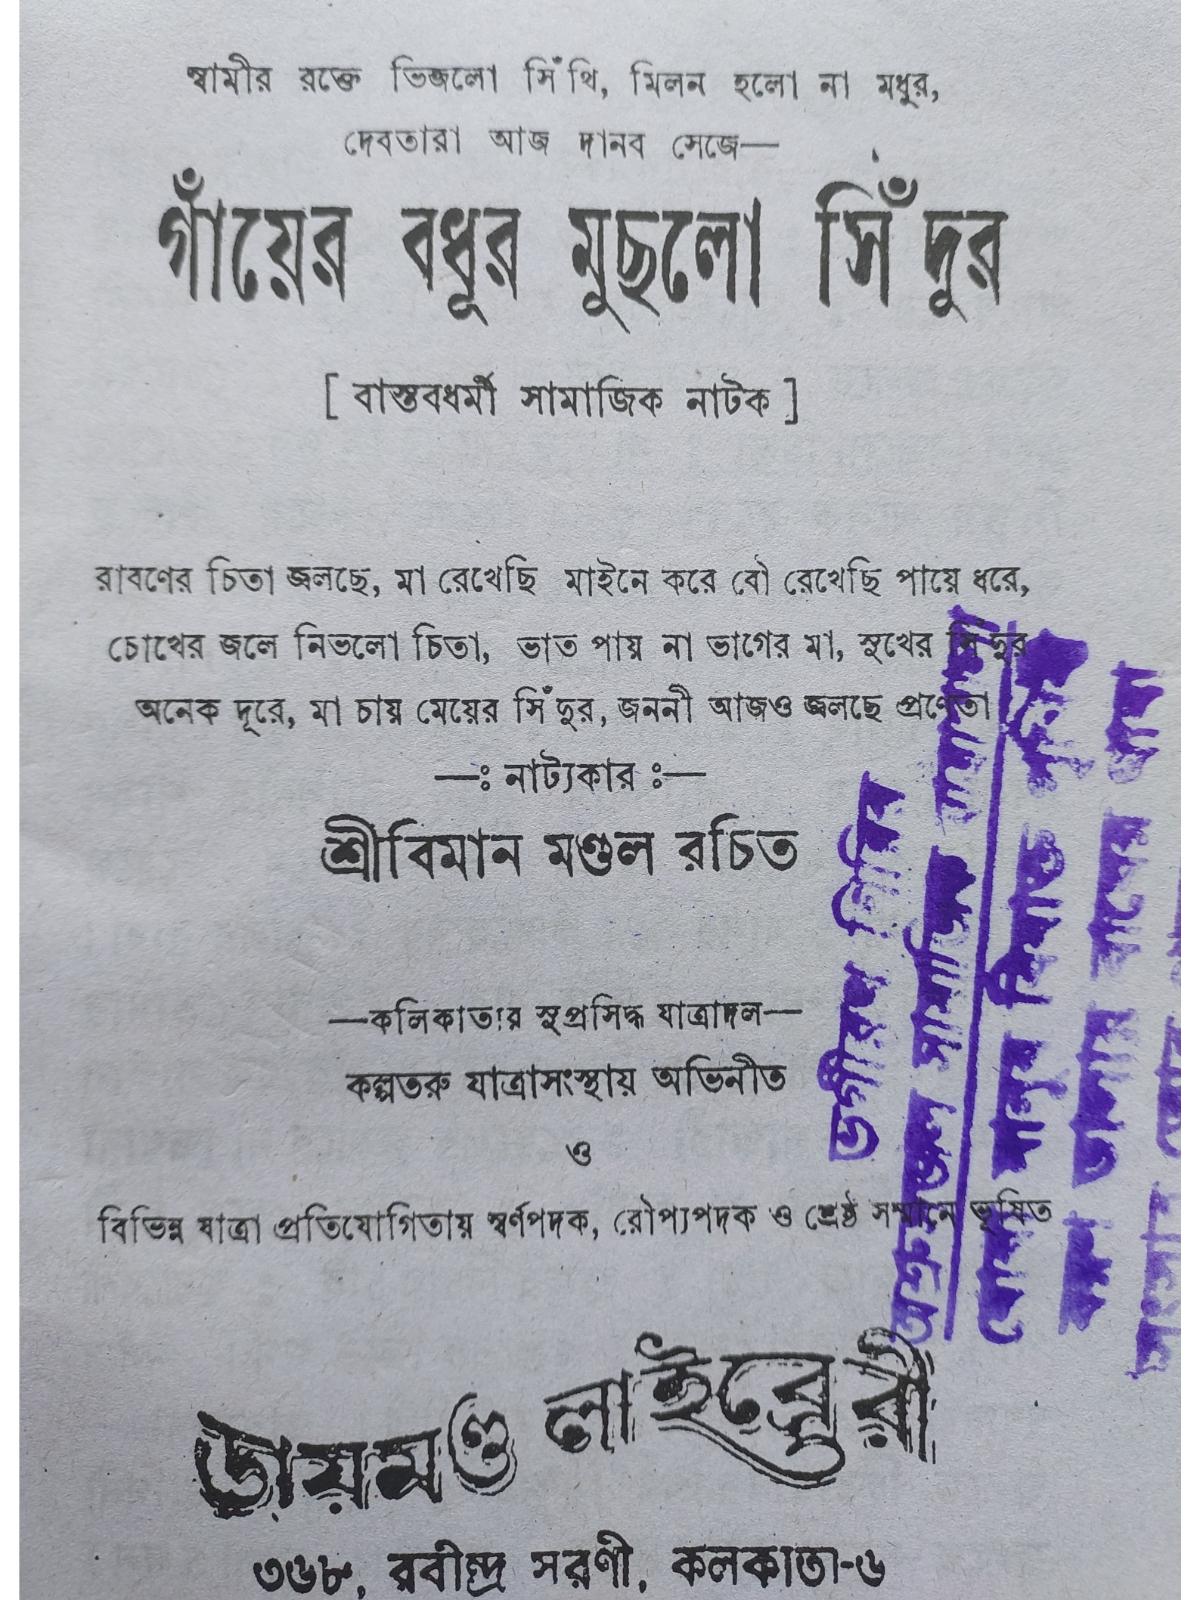 স্বামীর রক্তে ভিজলো সিঁথি, মিলন হলো না মধুর,
দেবতারা আজ দানব সেজে—
গাঁয়ের বধূর মুছলো সিঁদুর
[ বাস্তবধর্মী সামাজিক নাটক ]
রাবণের চিতা জ্বলছে, মা রেখেছি মাইনে করে বৌ রেখেছি পায়ে ধরে,
চোখের জলে নিভলো চিতা, ভাত পায় না ভাগের মা, সুখের সিঁদুর
অনেক দূরে, মা চায় মেয়ের সিঁদুর, জননী আজও জ্বলছে প্রণেতা
—ঃ নাট্যকার ঃ—
শ্রীবিমান মণ্ডল রচিত
—কলিকাতার সুপ্রসিদ্ধ যাত্রাদল—
কল্পতরু যাত্রাসংস্থায় অভিনীত
ও
বিভিন্ন যাত্রা প্রতিযোগিতায় স্বর্ণপদক, রৌপ্যপদক ও শ্রেষ্ঠ সম্মানে ভূষিত
ডায়মণ্ড লাইব্রেরী
৩৬৮, রবীন্দ্র সরণী, কলকাতা-৬
ভগীরথ গিরির
অশ্রুসজল সামাজিক